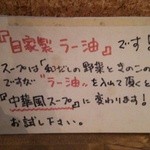 『自家製 ラー油』です!
スープは「和だしの野菜ときのこの
ですが"ラー油"を入れて頂くと
『中華風スープ』に変わります!
お試し下さい。